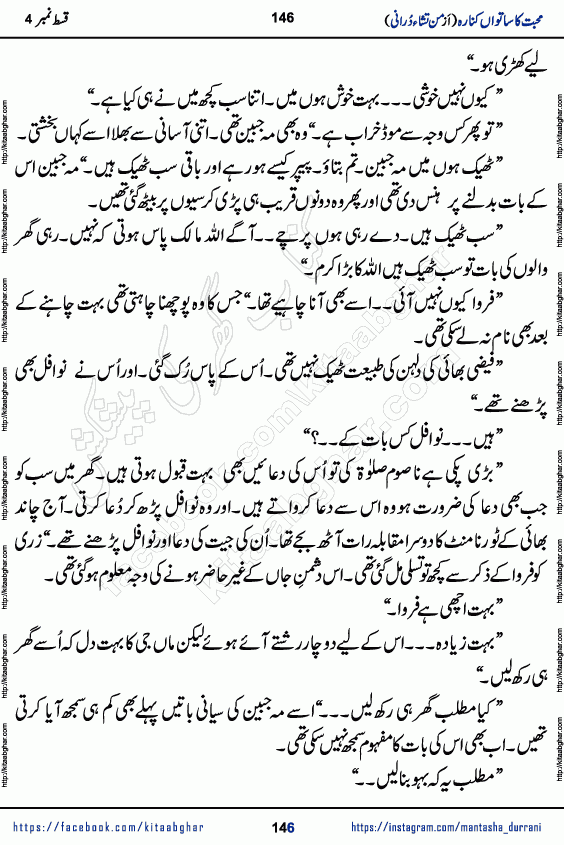 محبت کا ساتواں کنارہ (از من تشاء دُرانی) 146 قسط نمبر 4
لیے کھڑی ہو۔“
”کیوں نہیں خوشی ۔۔۔ بہت خوش ہوں میں۔ اتنا سب کچھ میں نے ہی کیا ہے۔“
”تو پھر کس وجہ سے موڈ خراب ہے۔“ وہ بھی مہ جبین تھی۔ اتنی آسانی سے بھلا اسے کہاں بخشتی۔
”ٹھیک ہوں میں مہ جبین۔ تم بتاؤ۔ پیپر کیسے ہو رہے اور باقی سب ٹھیک ہیں۔“ مہ جبین اس
کے بات بدلنے پر ہنس دی تھی اور پھر وہ دونوں قریب ہی پڑی کرسیوں پر بیٹھ گئی تھیں۔
”سب ٹھیک ہیں۔ دے رہی ہوں پرچے ۔۔ آگے اللہ مالک پاس ہوتی کہ نہیں۔ رہی گھر
والوں کی بات تو سب ٹھیک ہیں اللہ کا بڑا کرم۔“
”فروا کیوں نہیں آئی ۔۔ اسے بھی آنا چاہیے تھا۔“ جس کا وہ پوچھنا چاہتی تھی بہت چاہنے کے
بعد بھی نام نہ لے سکی تھی۔
”فیضی بھائی کی دلہن کی طبیعت ٹھیک نہیں تھی۔ اُس کے پاس رُک گئی۔ اور اُس نے نوافل بھی
پڑھنے تھے۔“
”ہیں ۔۔۔ نوافل کس بات کے ۔۔؟“
”بڑی پکی ہے نا صوم صلوٰۃ کی تو اُس کی دعائیں بھی بہت قبول ہوتی ہیں۔ گھر میں سب کو
جب بھی دعا کی ضرورت ہو وہ اس سے دعا کرواتے ہیں۔ اور وہ نوافل پڑھ کر دُعا کرتی۔ آج چاند
بھائی کے ٹورنامنٹ کا دوسرا مقابلہ رات آٹھ بجے تھا۔ اُن کی جیت کی دعا اور نوافل پڑھنے تھے۔“ زری
کو فروا کے ذکر سے کچھ تو تسلی مل گئی تھی۔ اس دشمنِ جاں کے غیر حاضر ہونے کی وجہ معلوم ہو گئی تھی۔
”بہت اچھی ہے فروا۔“
”بہت زیادہ ۔۔۔ اس کے لیے دو چار رشتے آئے ہوئے لیکن ماں جی کا بہت دل کہ اُسے گھر
ہی رکھ لیں۔“
”کیا مطلب گھر ہی رکھ لیں ۔۔۔“ اسے مہ جبین کی سیانی باتیں پہلے بھی کم ہی سمجھ آیا کرتی
تھیں۔ اب بھی اس کی بات کا مفہوم سمجھ نہیں سکی تھی۔
”مطلب یہ کہ بہو بنا لیں ۔۔“
https://facebook.com/kitaabghar 146 https://instagram.com/mantasha_durrani
http://kitaabghar.com